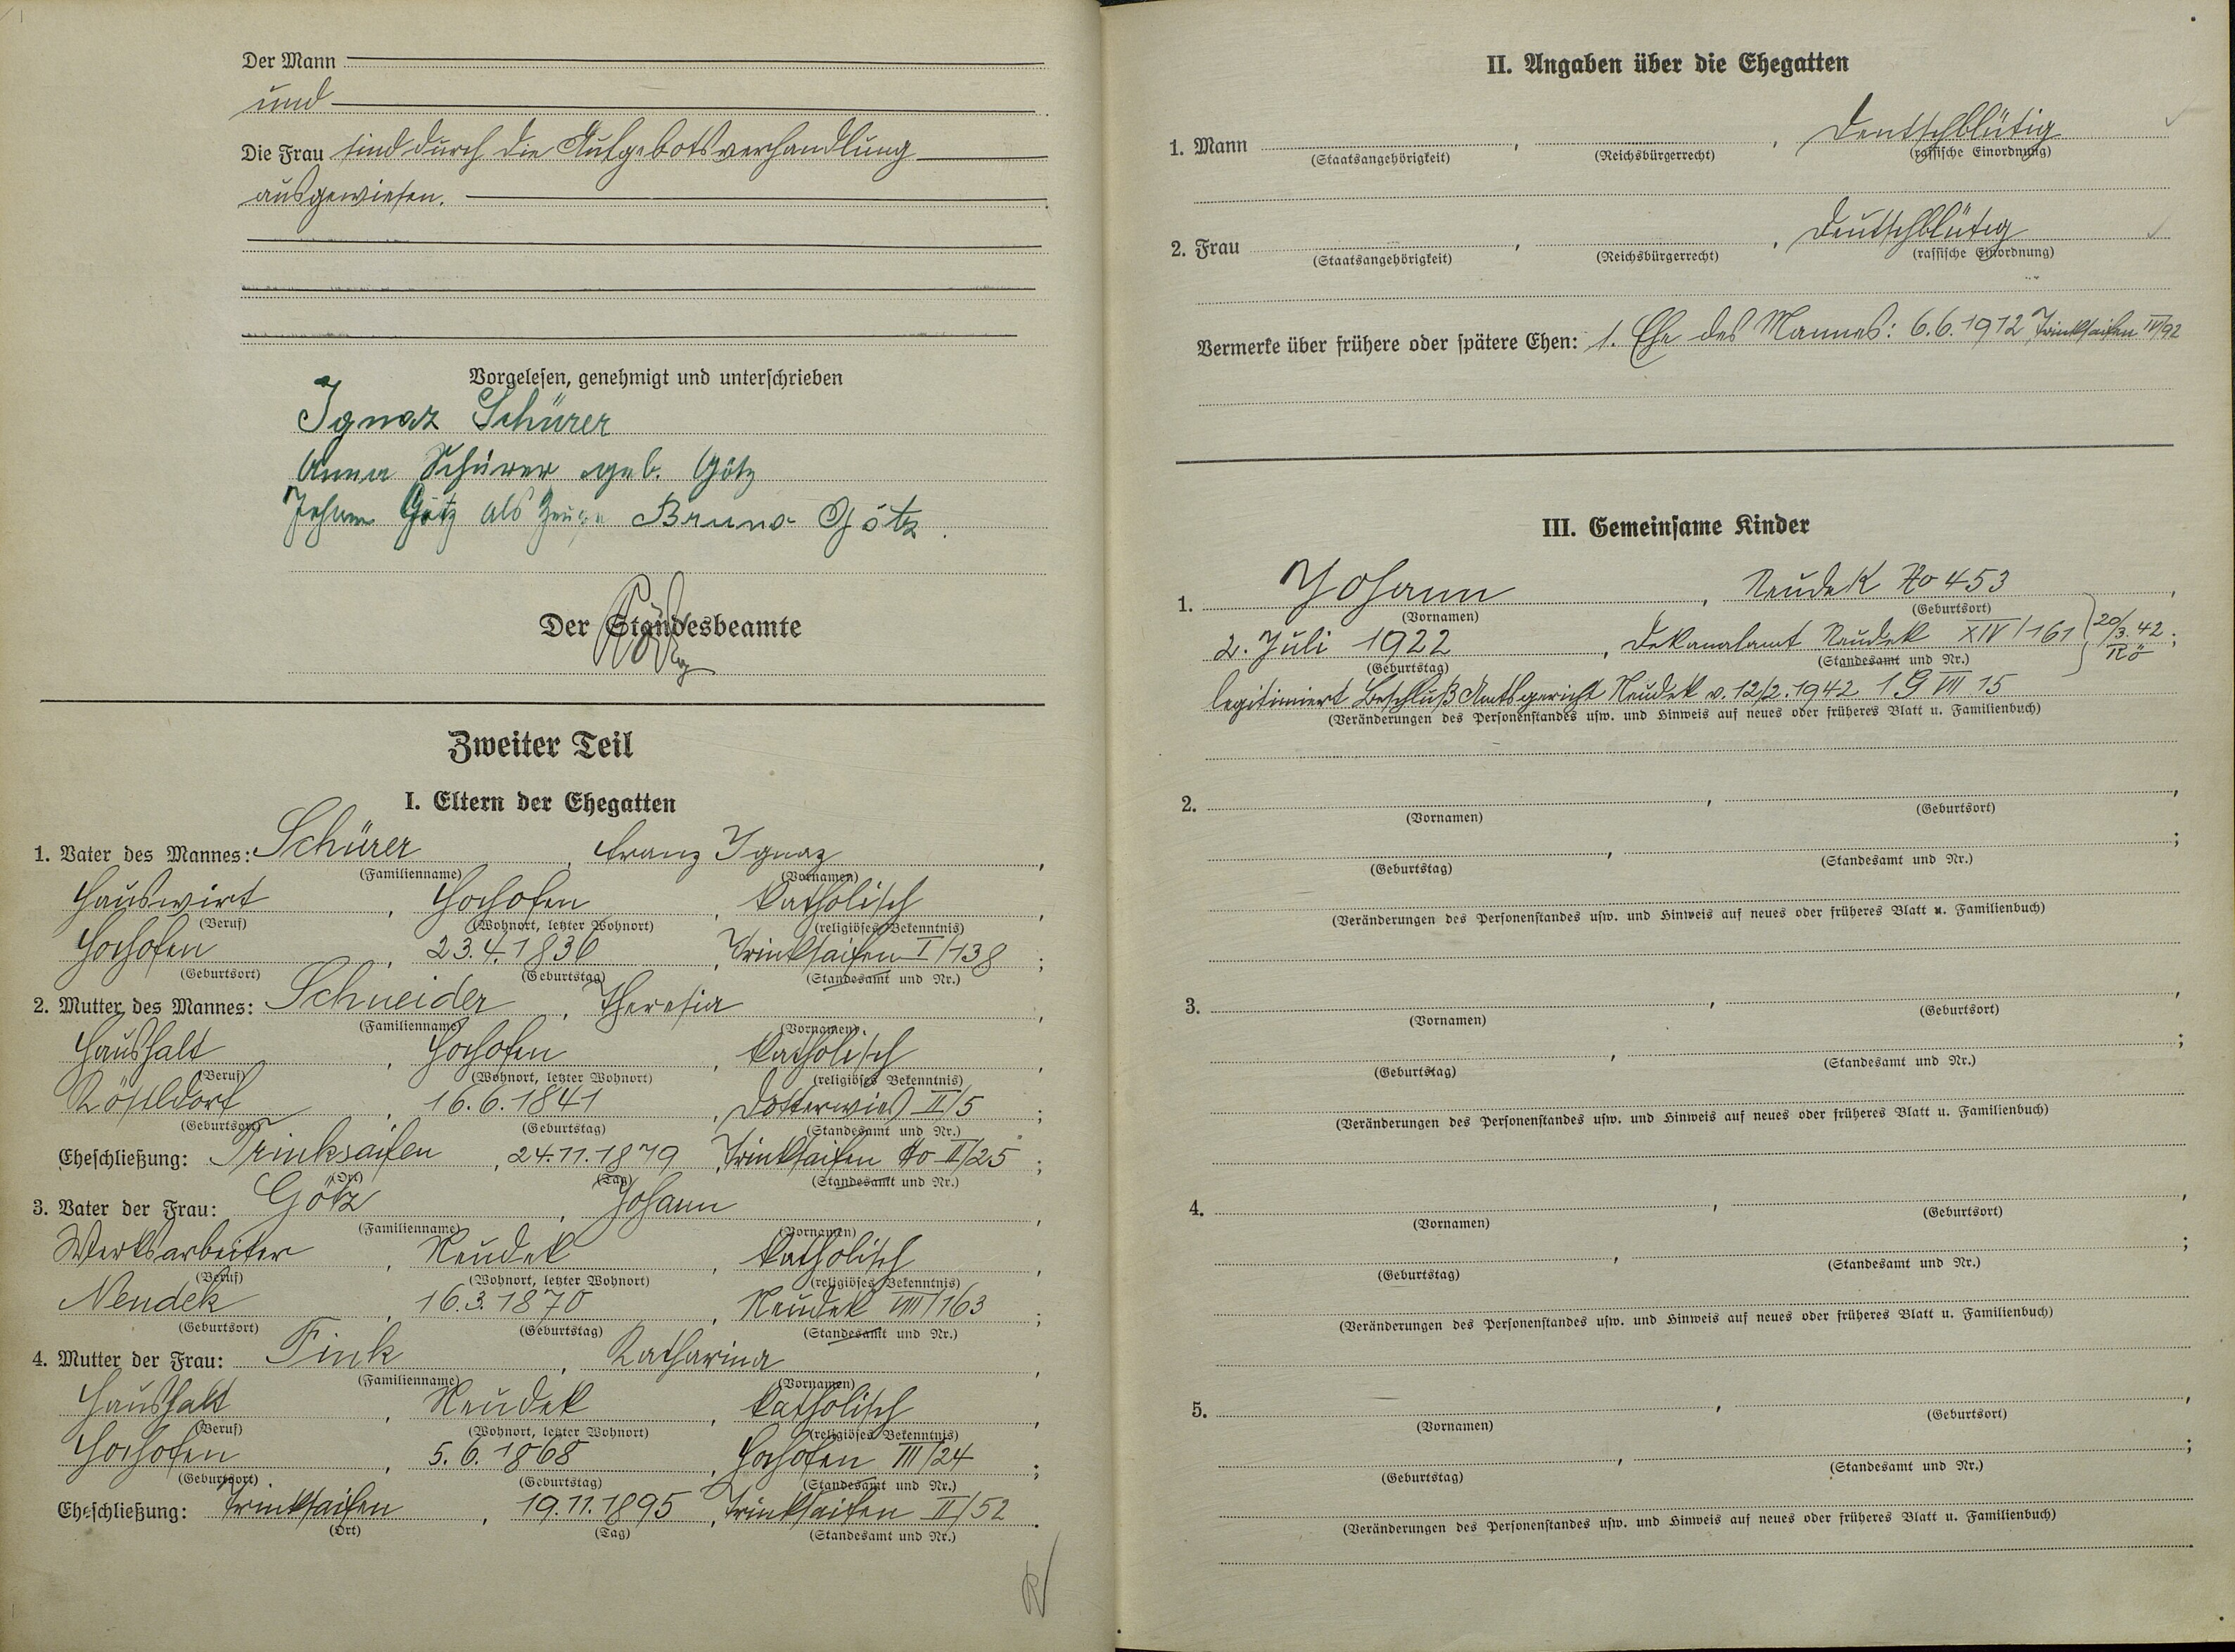 Der Mann
und
Die Frau sind durch die Aufgebotsverhandlung
ausgewiesen.
Vorgelesen, genehmigt und unterschrieben
Ignaz Schürer
Anna Schürer geb. Götz
Johann Götz als Zeuge Bruno Götz.
Der Standesbeamte
Zweiter Teil
I. Eltern der Ehegatten
1. Vater des Mannes: Schürer, Franz Ignaz,
(Familienname) (Vornamen)
Hauswirt, Hochofen, katholisch,
(Beruf) (Wohnort, letzter Wohnort) (religiöses Bekenntnis)
Hochofen, 23.4.1836, Trinksaifen I/138;
(Geburtsort) (Geburtstag) (Standesamt und Nr.)
2. Mutter des Mannes: Schneider, Theresia,
(Familienname) (Vornamen)
Haushalt, Hochofen, katholisch,
(Beruf) (Wohnort, letzter Wohnort) (religiöses Bekenntnis)
Kösteldorf, 16.6.1841, Dotterwies II/5;
(Geburtsort) (Geburtstag) (Standesamt und Nr.)
Eheschließung: Trinksaifen, 24.11.1879, Trinksaifen No II/25;
(Ort) (Tag) (Standesamt und Nr.)
3. Vater der Frau: Götz, Johann,
(Familienname) (Vornamen)
Werksarbeiter, Neudek, katholisch,
(Beruf) (Wohnort, letzter Wohnort) (religiöses Bekenntnis)
Neudek, 16.3.1870, Neudek VIII/163;
(Geburtsort) (Geburtstag) (Standesamt und Nr.)
4. Mutter der Frau: Fink, Katharina,
(Familienname) (Vornamen)
Haushalt, Neudek, katholisch,
(Beruf) (Wohnort, letzter Wohnort) (religiöses Bekenntnis)
Hochofen, 5.6.1868, Hochofen III/24;
(Geburtsort) (Geburtstag) (Standesamt und Nr.)
Eheschließung: Trinksaifen, 19.11.1895, Trinksaifen II/52.
(Ort) (Tag) (Standesamt und Nr.)
II. Angaben über die Ehegatten
1. Mann , , Deutschblütig
(Staatsangehörigkeit) (Reichsbürgerrecht) (rassische Einordnung)
2. Frau , , Deutschblütig
(Staatsangehörigkeit) (Reichsbürgerrecht) (rassische Einordnung)
Vermerke über frühere oder spätere Ehen: 1. Ehe des Mannes: 6.6.1912 Trinksaifen IV/92
III. Gemeinsame Kinder
1. Johann, Neudek No 453,
(Vornamen) (Geburtsort)
2. Juli 1922, Dekanalamt Neudek XIV/161 20/3.42 Rö;
(Geburtstag) (Standesamt und Nr.)
legitimiert Beschluß Amtsgericht Neudek v. 12/2.1942 1 G VII 15
(Veränderungen des Personenstandes usw. und Hinweis auf neues oder früheres Blatt u. Familienbuch)
2. , ,
(Vornamen) (Geburtsort)
, ;
(Geburtstag) (Standesamt und Nr.)
(Veränderungen des Personenstandes usw. und Hinweis auf neues oder früheres Blatt u. Familienbuch)
3. , ,
(Vornamen) (Geburtsort)
, ;
(Geburtstag) (Standesamt und Nr.)
(Veränderungen des Personenstandes usw. und Hinweis auf neues oder früheres Blatt u. Familienbuch)
4. , ,
(Vornamen) (Geburtsort)
, ;
(Geburtstag) (Standesamt und Nr.)
(Veränderungen des Personenstandes usw. und Hinweis auf neues oder früheres Blatt u. Familienbuch)
5. , ,
(Vornamen) (Geburtsort)
, ;
(Geburtstag) (Standesamt und Nr.)
(Veränderungen des Personenstandes usw. und Hinweis auf neues oder früheres Blatt u. Familienbuch)